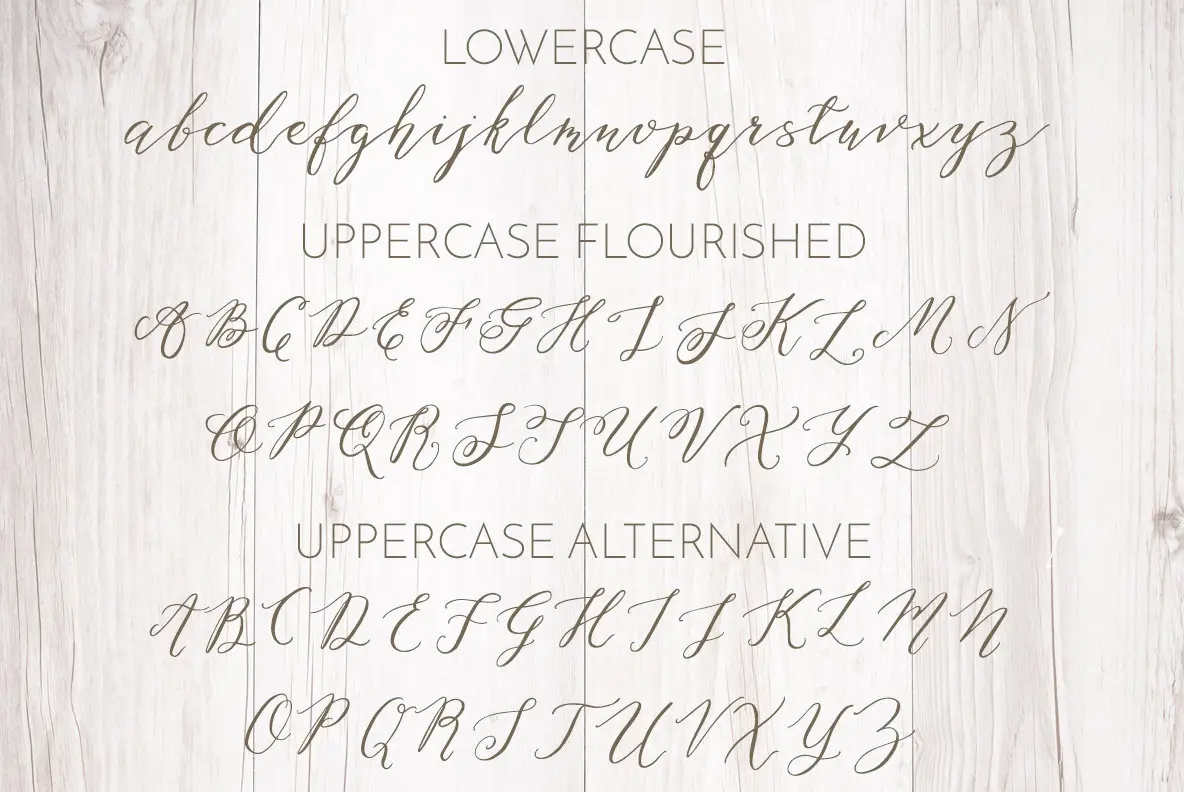 LOWERCASE
abcdefghijklmnopqrstuvxyz
UPPERCASE FLOURISHED
A B C D E F G H I J K L M N
O P Q R S T U V X Y Z
UPPERCASE ALTERNATIVE
A B C D E F G H I J K L M N
O P Q R S T U V X Y Z